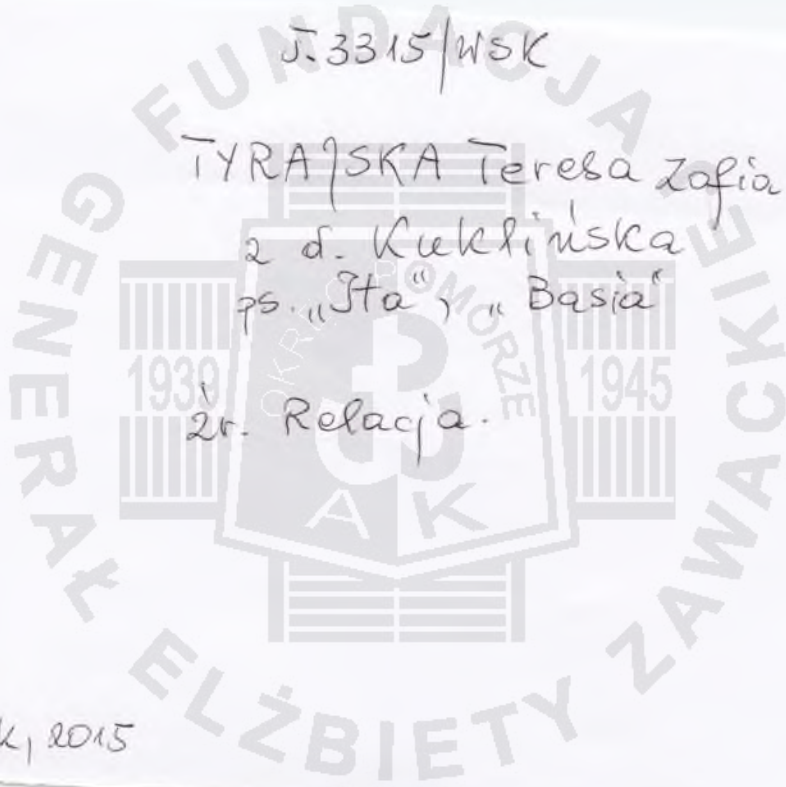 J. 3315/WSK
TYRAJSKA Teresa Zofia
z d. Kuklińska
ps. „Ita", „Basia"
źr. Relacja.
2015
FUNDACJA
GENERAŁ ELŻBIETY ZAWACKIEJ
OKRĘG POMORZE
1939
1945
AK